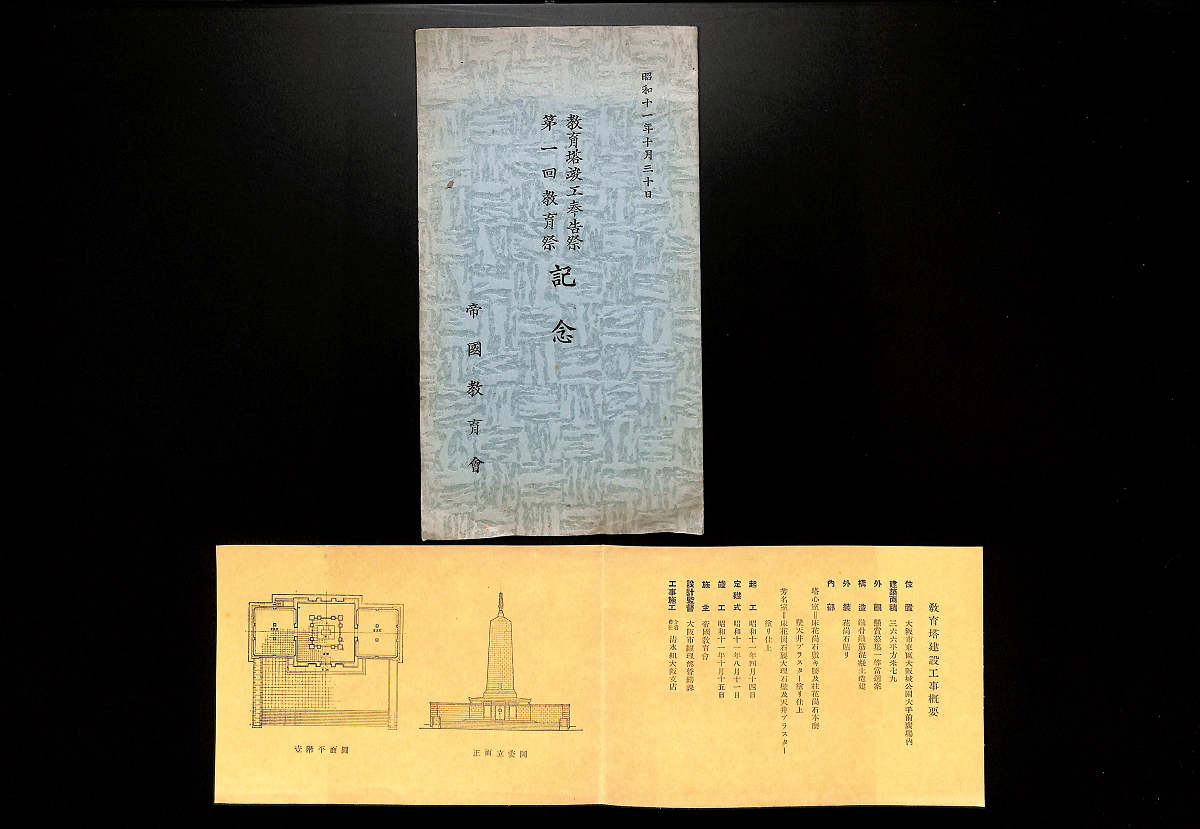 昭和十一年十月三十日
教育塔竣工奉告祭
第一回教育祭
記念
帝國教育會
教育塔建設工事概要
位置 大阪市東區大阪城公園大手前廣場内
建築面積 三六六平方米七九
外觀 懸賞募集一等當選案
構造 鐵骨鐵筋混凝土造建
外裝 花崗石貼リ
内部
塔心室＝床花崗石敷キ腰及柱花崗石本磨
壁天井プラスター塗リ仕上
芳名室＝床花崗石腰大理石壁及天井プラスター
塗リ仕上
起工 昭和十一年四月十四日
定礎式 昭和十一年八月十一日
竣工 昭和十一年十月十五日
施主 帝國教育會
設計監督 大阪市營繕課
工事施工 清水組大阪支店
正面立姿圖
壹階平面圖